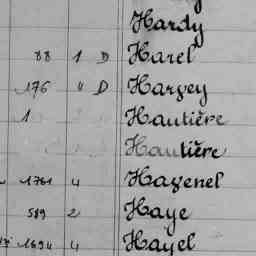 Hardy
88 1 D Harel
176 " D Harvey
1 Hautière
Hautière
1761 4 Havenel
589 2 Haye
1694 4 Hayel